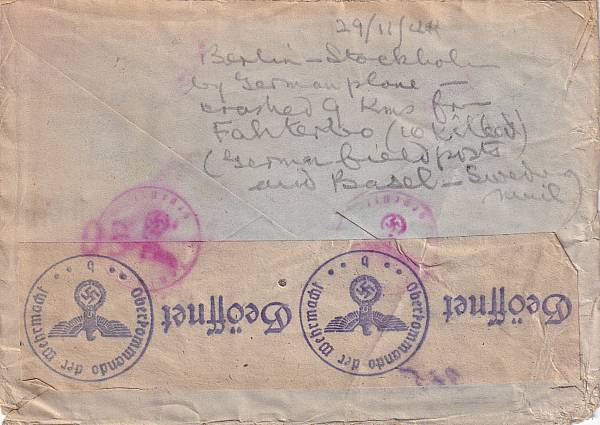 29/11/44
Berlin – Stockholm
by German plane –
crashed 9 Kms fm
Falsterbo (10 killed)
(German fieldposts
and Basel – Sweden
mail)
Geöffnet
b
Oberkommando der Wehrmacht
Geöffnet
b
Oberkommando der Wehrmacht